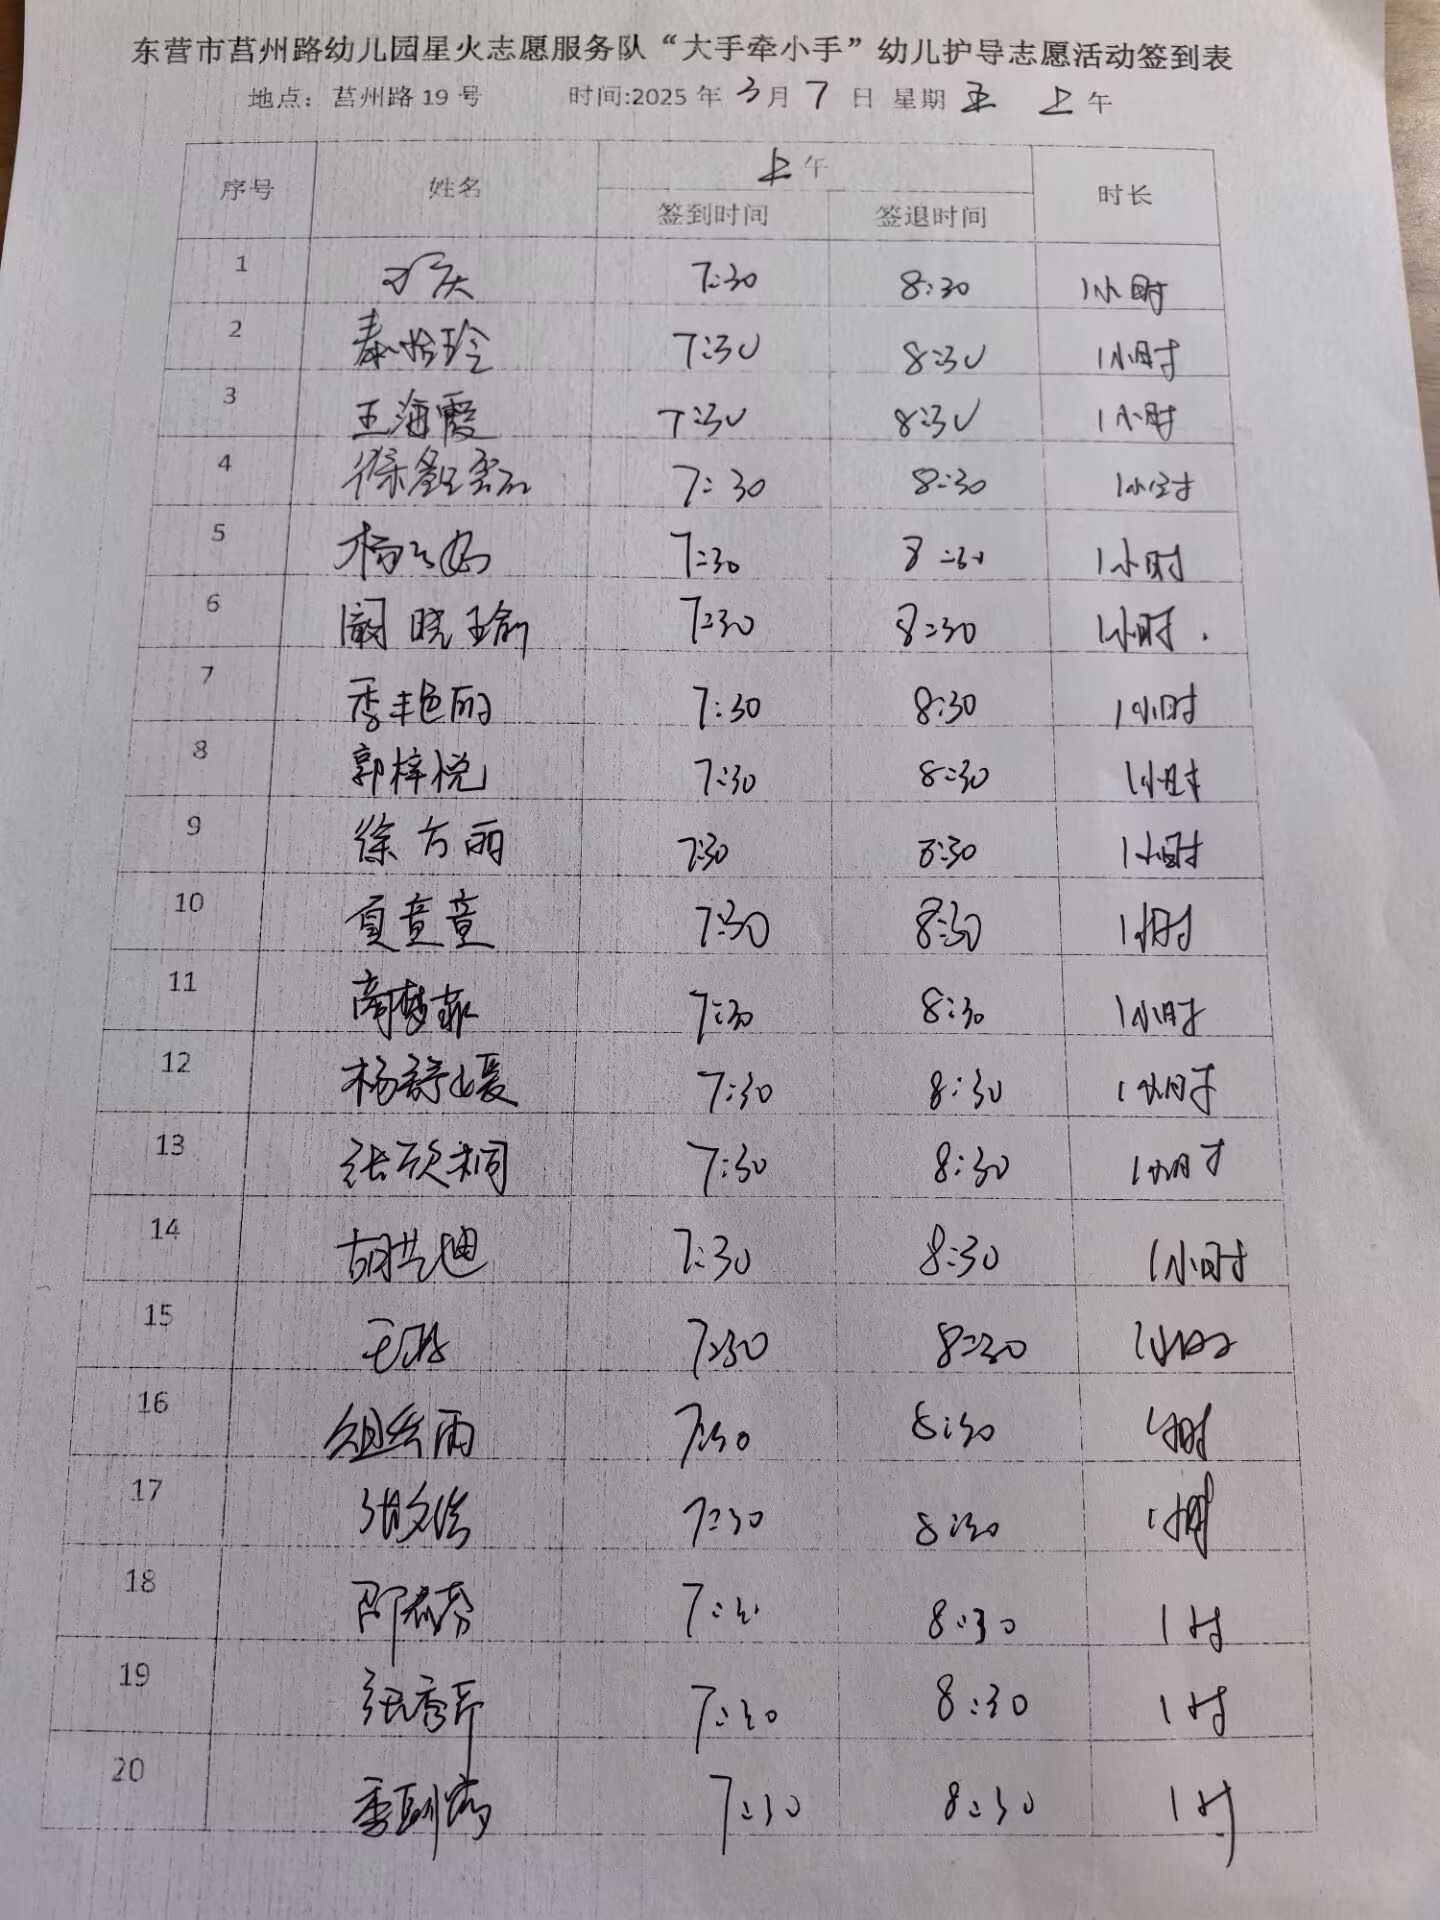 东营市莒州路幼儿园星火志愿服务队“大手牵小手”幼儿护导志愿活动签到表
地点：莒州路 19 号 时间:2025 年 3 月 7 日 星期 五 上 午
序号 姓名 上 午 时长
签到时间 签退时间
1 7:30 8:30 1小时
2 秦怡玲 7:30 8:30 1小时
3 王海霞 7:30 8:30 1小时
4 徐 7:30 8:30 1小时
5 杨 7:30 8:30 1小时
6 阚晓瑜 7:30 8:30 1小时.
7 季艳丽 7:30 8:30 1小时
8 郭梓悦 7:30 8:30 1小时
9 徐方丽 7:30 8:30 1小时
10 贠童童 7:30 8:30 1小时
11 商梦菲 7:30 8:30 1小时
12 杨舒媛 7:30 8:30 1小时
13 张欣桐 7:30 8:30 1小时
14 胡兰迪 7:30 8:30 1小时
15 王 7:30 8:30 1小时
16 雨 7:30 8:30 小时
17 胡文 7:30 8:30 1小时
18 邵春芬 7:30 8:30 1时
19 张秀芹 7:30 8:30 1时
20 7:30 8:30 1时